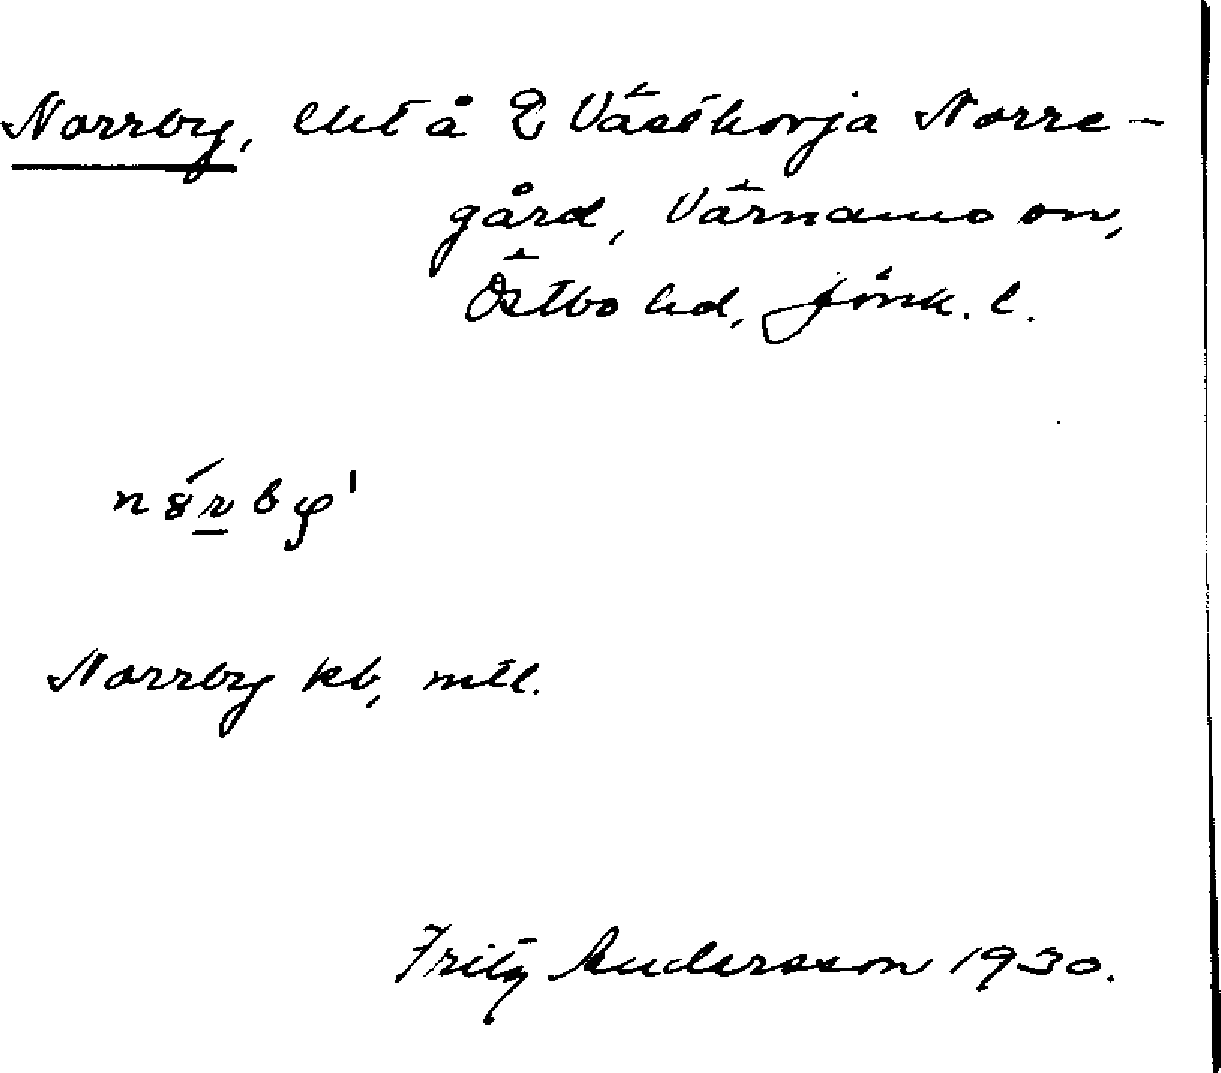 Norrby, lht å 2 Västhorja Norre-
gård, Värnamo sn,
Östbo hd, Jönk. l.
Norrby kb, mtl.
Fritz Andersson 1930.